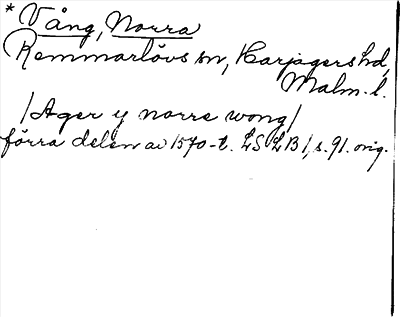 * Vång, Norra
Remmarlövs sn, Harjagers hd,
Malm. l.
/Ager y norre wong/
förra delen av 1570-t. LSLB 1, s. 91. orig.